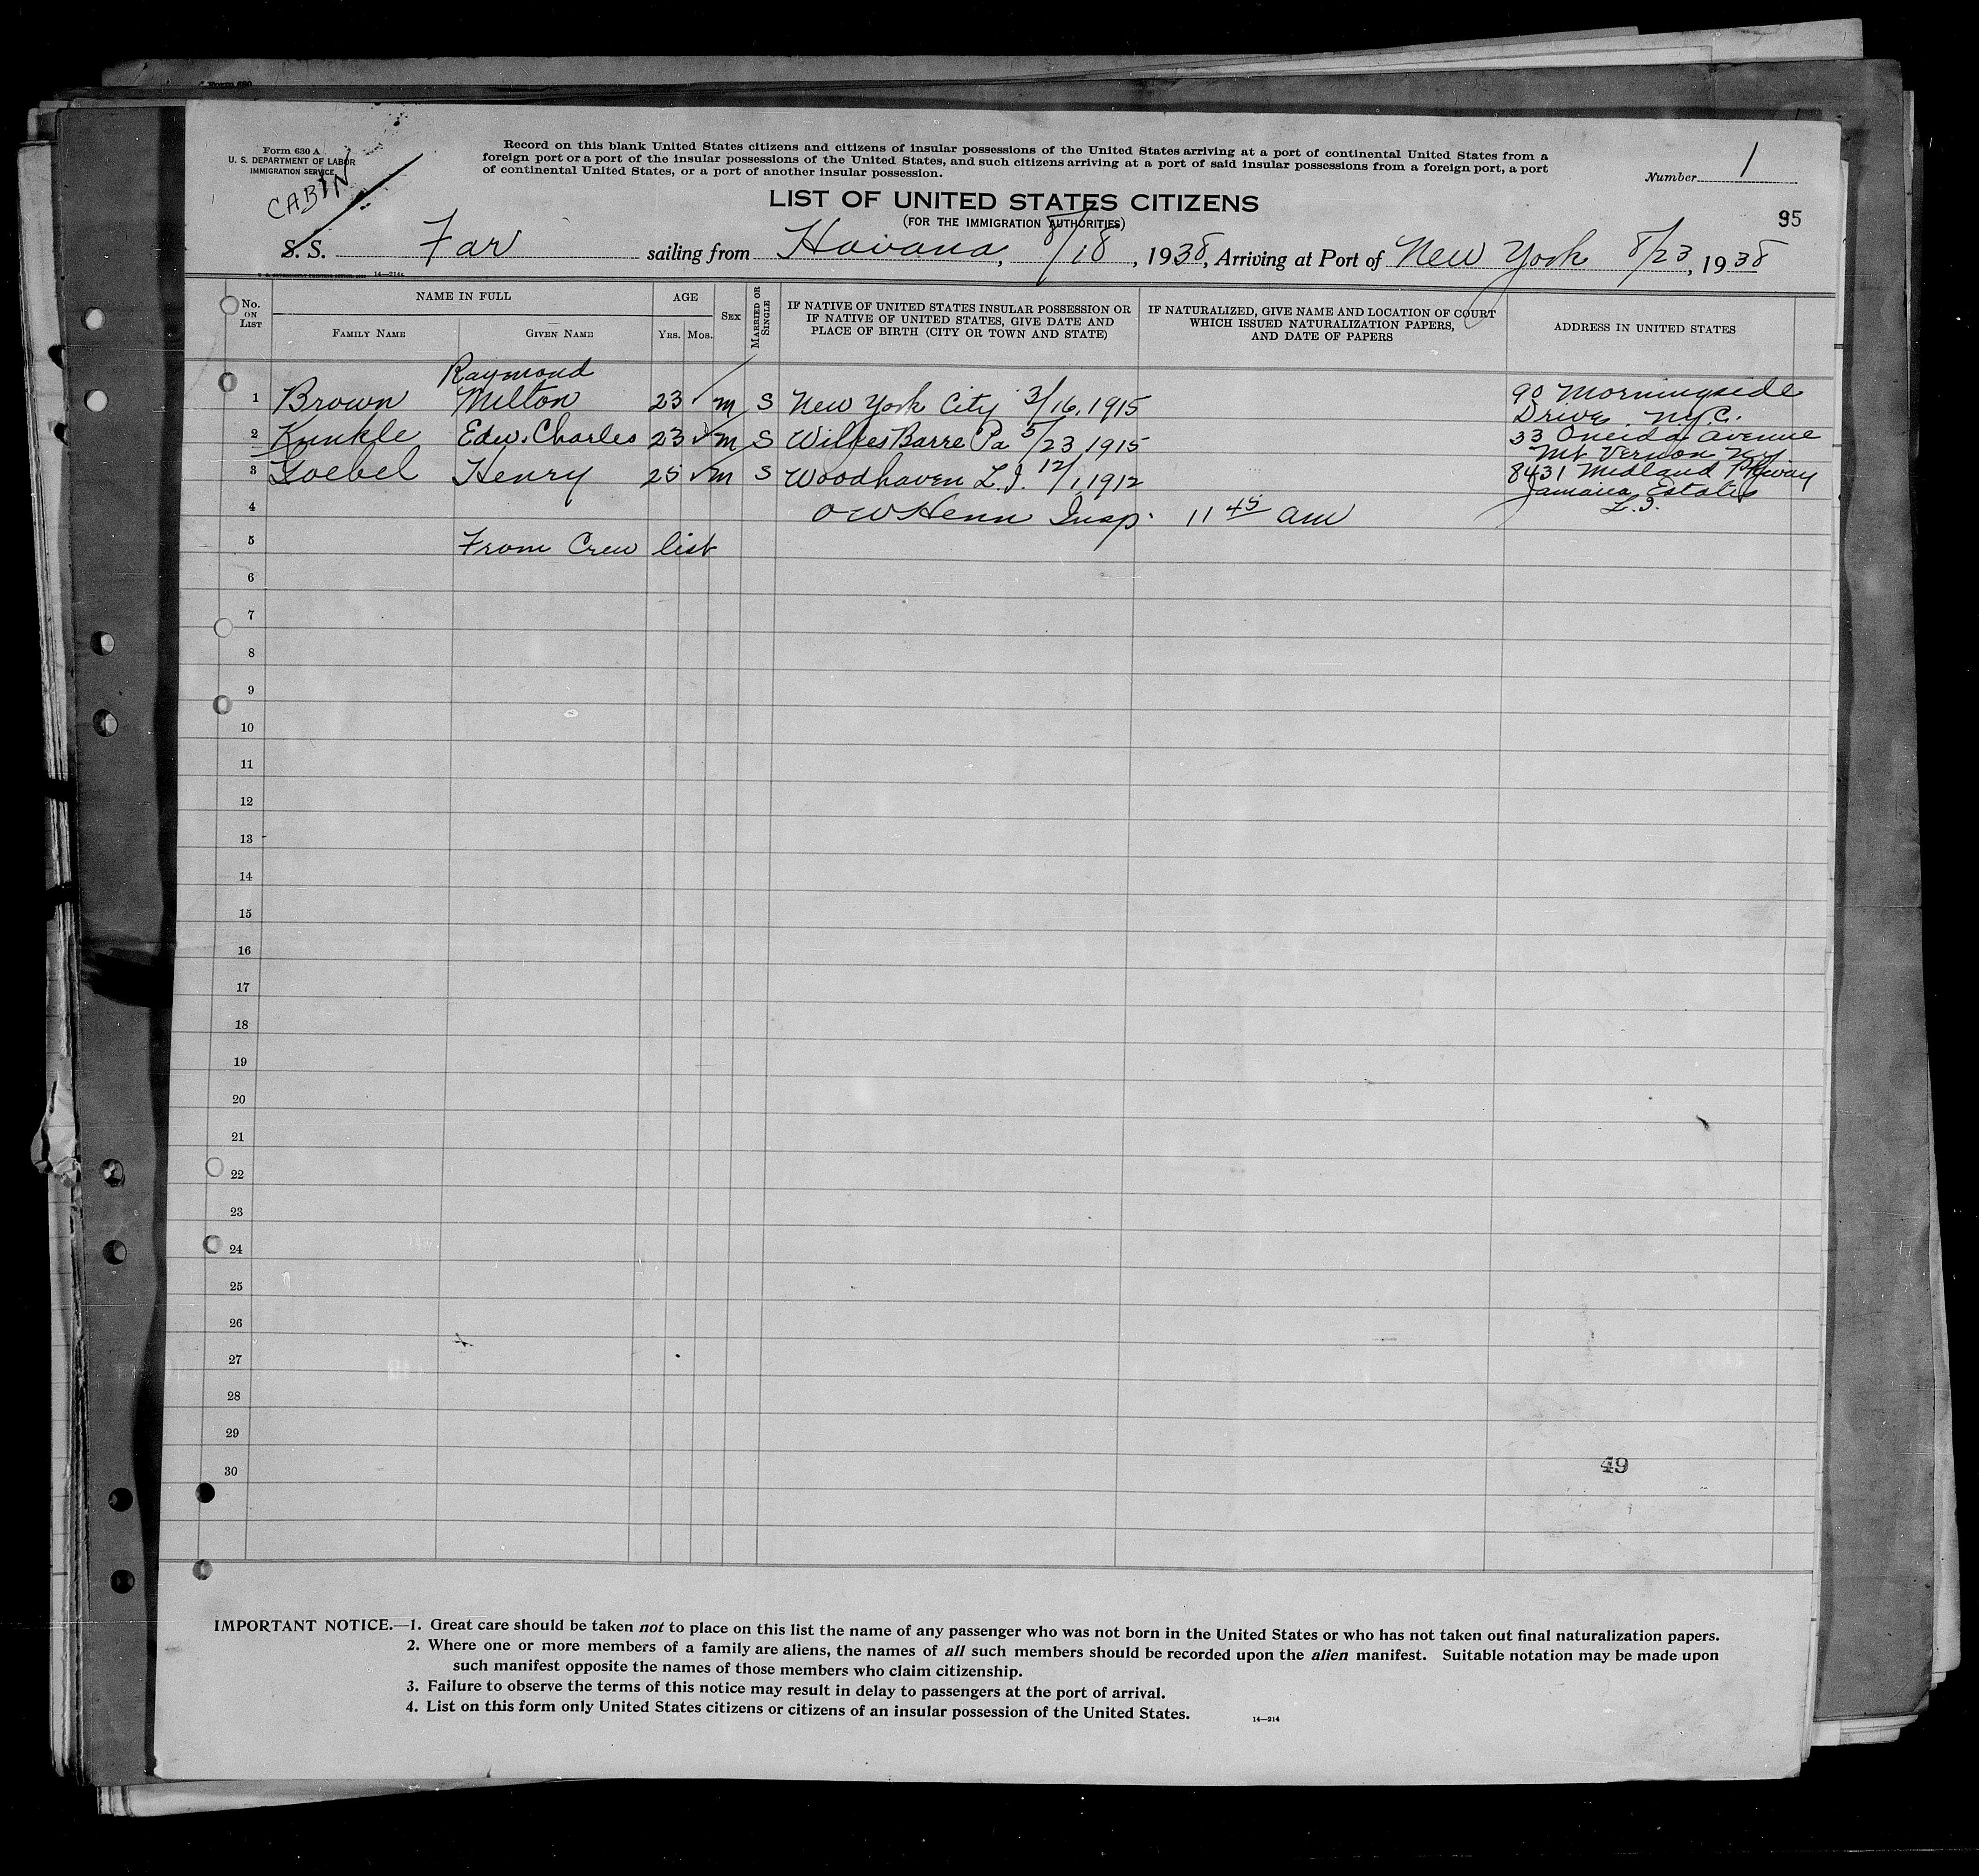 Form 630 A
U. S. DEPARTMENT OF LABOR
IMMIGRATION SERVICE
CABIN
Record on this blank United States citizens and citizens of insular possessions of the United States arriving at a port of continental United States from a
foreign port or a port of the insular possessions of the United States, and such citizens arriving at a port of said insular possessions from a foreign port, a port
of continental United States, or a port of another insular possession.
Number 1
LIST OF UNITED STATES CITIZENS
(FOR THE IMMIGRATION AUTHORITIES)
95
S. S. Far sailing from Havana, 8/18, 1938, Arriving at Port of New York 8/23, 1938
14—214a
No. ON LIST
NAME IN FULL
FAMILY NAME
GIVEN NAME
AGE
YRS. MOS.
SEX
MARRIED OR SINGLE
IF NATIVE OF UNITED STATES INSULAR POSSESSION OR
IF NATIVE OF UNITED STATES, GIVE DATE AND
PLACE OF BIRTH (CITY OR TOWN AND STATE)
IF NATURALIZED, GIVE NAME AND LOCATION OF COURT
WHICH ISSUED NATURALIZATION PAPERS,
AND DATE OF PAPERS
ADDRESS IN UNITED STATES
Raymond
1 Brown Milton 23 m S New York City 3/16, 1915 90 Morningside
Drive. N.Y.C.
2 Kunkle Edw. Charles 23 m S Wilkes Barre Pa 5/23 1915 33 Oneida Avenue
Mt Vernon NY
3 Goebel Henry 25 m S Woodhaven L.I. 12/1, 1912 8431 Midland Pkway
Jamaica Estates
L.I.
4 O W Henn Insp. 11 45 am
5 From Crew list
6
7
8
9
10
11
12
13
14
15
16
17
18
19
20
21
22
23
24
25
26
27
28
29
30
49
IMPORTANT NOTICE.—1. Great care should be taken not to place on this list the name of any passenger who was not born in the United States or who has not taken out final naturalization papers.
2. Where one or more members of a family are aliens, the names of all such members should be recorded upon the alien manifest. Suitable notation may be made upon
such manifest opposite the names of those members who claim citizenship.
3. Failure to observe the terms of this notice may result in delay to passengers at the port of arrival.
4. List on this form only United States citizens or citizens of an insular possession of the United States.
14—214